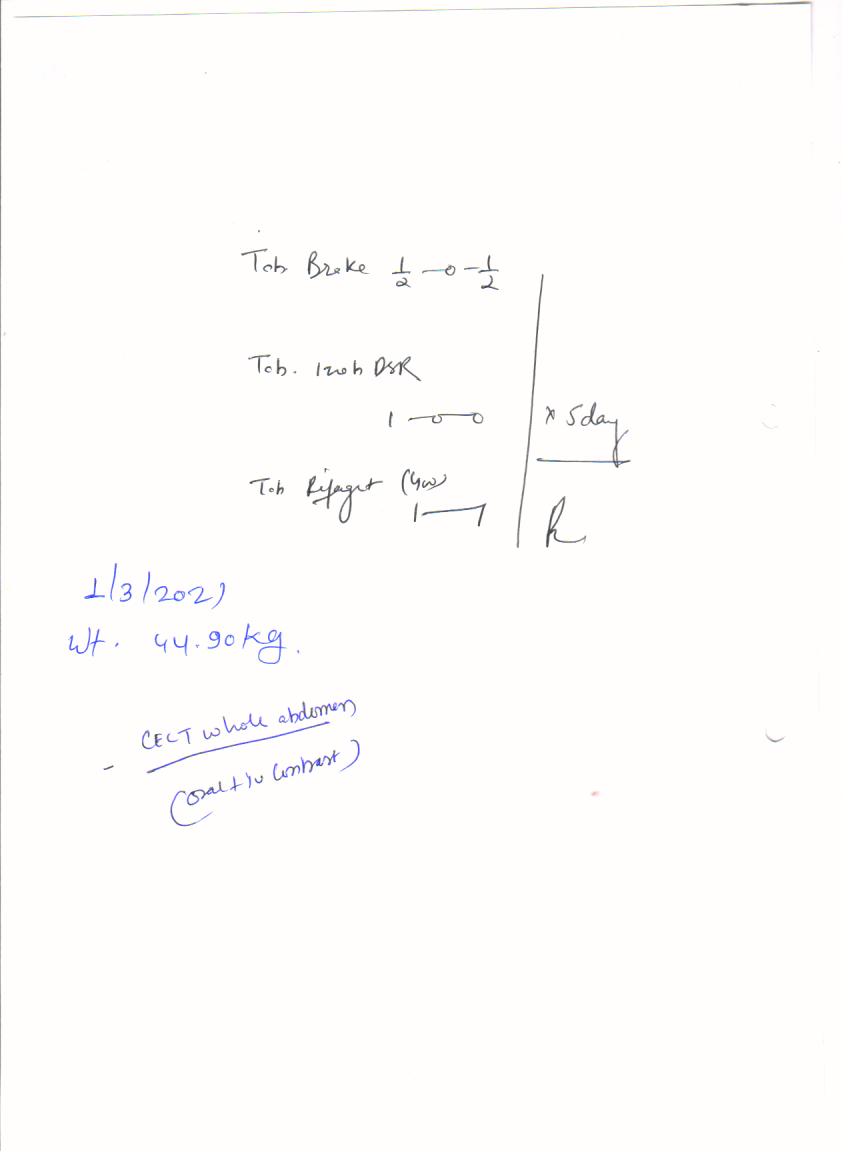 Tab Brake 1/2 —0— 1/2
Tab. Izoh DSR
1 —0—0
x 5 day
Tab Rifagut (400)
1——1
1/3/2021
Wt. 44.90 kg.
- CECT whole abdomen
(oral + iv contrast)